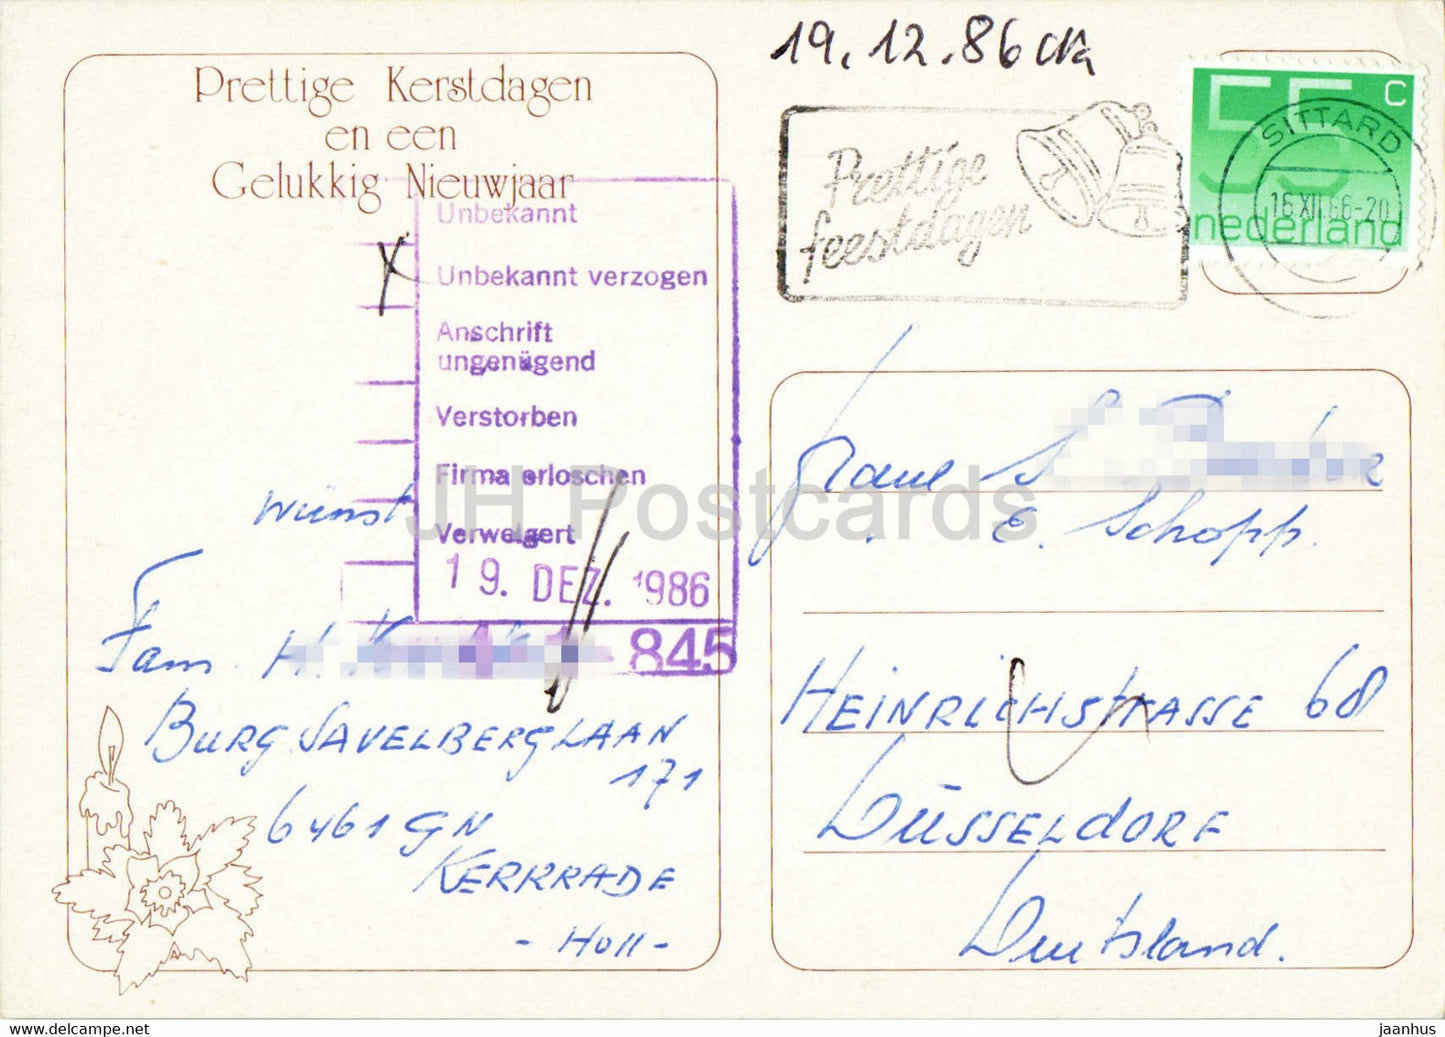 Prettige Kerstdagen
en een
Gelukkig Nieuwjaar
Unbekannt
Unbekannt verzogen
Anschrift
ungenügend
Verstorben
Firma erloschen
Verweigert
19. DEZ. 1986
845
wünst
Fam. H.
BURG SAVELBERGLAAN
171
6461 GN
KERKRADE
- Holl -
19.12.86
Prettige
feestdagen
55 c
nederland
SITTARD
16 XII.86-20
E. Schopp.
HEINRICHSTRASSE 68
DÜSSELDORF
Deutsland.
JH Postcards
www.delcampe.net
jaanhus